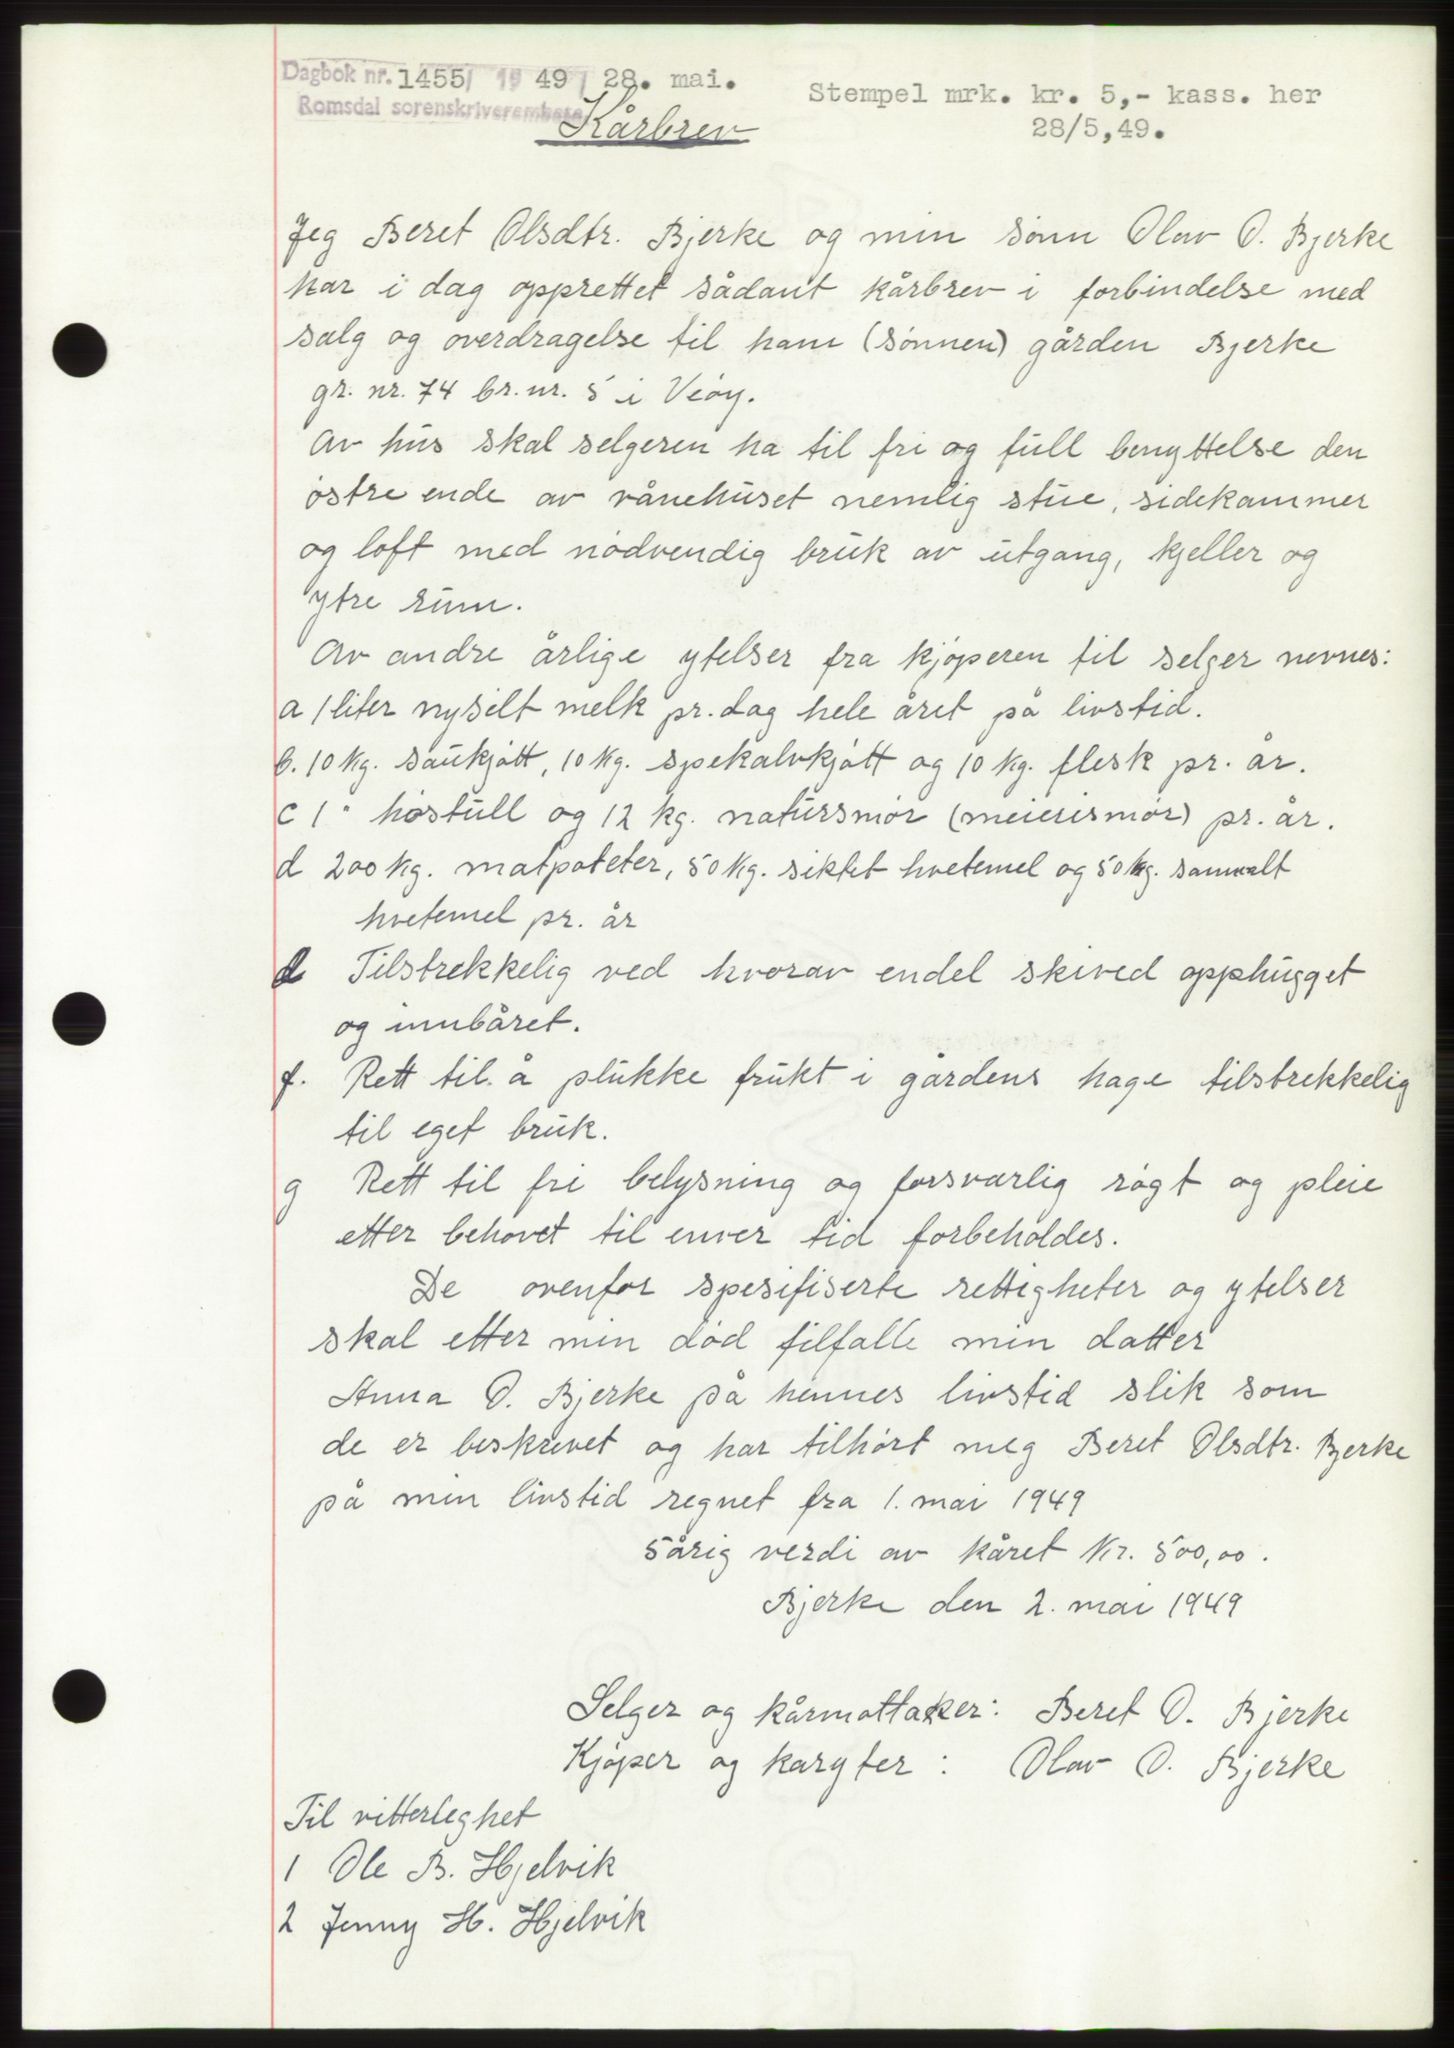 Dagbok nr. 1455/ 19 49/ 28. mai.
Romsdal sorenskriverembete
Stempel mrk. kr. 5,- kass. her
28/5,49.
Kårbrev
Jeg Beret Olsdtr. Bjerke og min sønn Olav O. Bjerke
har i dag opprettet sådant kårbrev i forbindelse med
salg og overdragelse til ham (sønnen) gården Bjerke
gr. nr. 74 br. nr. 5 i Veøy.
Av hus skal selgeren ha til fri og full benyttelse den
østre ende av vånehuset nemlig stue, sidekammer
og loft med nødvendig bruk av utgang, kjeller og
ytre rum.
Av andre årlige ytelser fra kjøperen til selger nevnes:
a 1 liter nysilt melk pr. dag hele året på livstid.
b. 10 kg. saukjøtt, 10 kg. spekalvkjøtt og 10 kg. flesk pr. år.
c 1 " høstull og 12 kg. natursmør (meierismør) pr. år.
d 200 kg. matpoteter, 50 kg. siktet hvetemel og 50 kg. samvalt
hvetemel pr. år
Tilstrekkelig ved hvorav endel skived opphugget
og innbåret.
f. Rett til å plukke frukt i gårdens hage tilstrekkelig
til eget bruk.
g Rett til fri belysning og forsvarlig røgt og pleie
etter behovet til enver tid forbeholdes.
De ovenfor spesifiserte rettigheter og ytelser
skal etter min død tilfalle min datter
Anna O. Bjerke på hennes livstid slik som
de er beskrevet og har tilhørt meg Beret Olsdtr. Bjerke
på min livstid regnet fra 1. mai 1949
5årig verdi av kåret Kr. 500,00.
Bjerke den 2. mai 1949
Selger og kårmottaker: Beret O. Bjerke
Kjøper og kåryter : Olav O. Bjerke
Til vitterleghet
1 Ole B. Hjelvik
2 Jenny H. Hjelvik